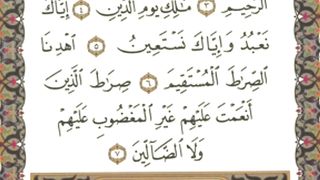 ٱلرَّحِيمِ ٣ مَٰلِكِ يَوْمِ ٱلدِّينِ ٤ إِيَّاكَ
نَعْبُدُ وَإِيَّاكَ نَسْتَعِينُ ٥ ٱهْدِنَا
ٱلصِّرَٰطَ ٱلْمُسْتَقِيمَ ٦ صِرَٰطَ ٱلَّذِينَ
أَنْعَمْتَ عَلَيْهِمْ غَيْرِ ٱلْمَغْضُوبِ عَلَيْهِمْ
وَلَا ٱلضَّآلِّينَ ٧